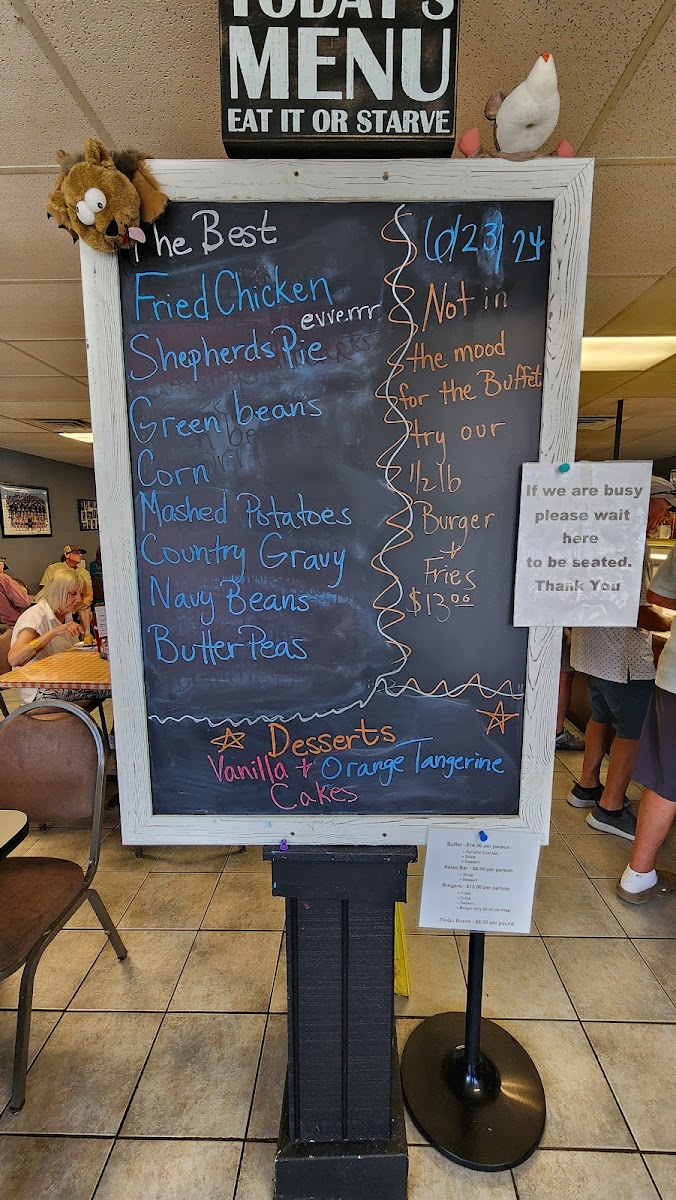 TODAY'S
MENU
EAT IT OR STARVE
The Best
Fried Chicken
evverrr
Shepherds Pie
Green beans
Corn
Mashed Potatoes
Country Gravy
Navy Beans
Butter Peas
6/23/24
Not in
the mood
for the Buffet
try our
1/2 lb
Burger
+
Fries
$13.00
Desserts
Vanilla + Orange Tangerine
Cakes
If we are busy
please wait
here
to be seated.
Thank You
Buffet - $14.00 per person
• Hot and Cold bar
• Drink
• Dessert
Salad Bar - $9.00 per person
• Drink
• Dessert
Burgers - $13.00 per person
• Fries
• Drink
• Dessert
To-Go Boxes - $8.00 per pound